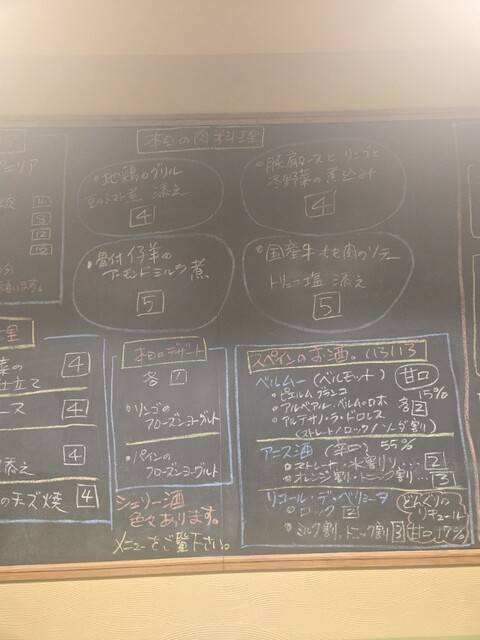 本日の肉料理
・地鶏のグリル
豆のトマト煮 添え
4
・豚肩ロースとリンゴと
冬野菜の煮込み
4
・骨付仔羊の
アーモンドミルク煮
5
・国産牛もも肉のソテー
トリュフ塩 添え
5
4
仕立て
ース
4
添え
4
のチーズ焼
4
本日のデザート
各 1
・リンゴの
フローズンヨーグルト
・パインの
フローズンヨーグルト
シェリー酒
色々あります。
メニューをご覧下さい。
スペインのお酒。いろいろ
ベルムー (ベルモット) 甘口
15%
各2
(ストレート/ロック/ソーダ割)
アニス酒 (辛口) 55%
・ストレート・水割り... 2
・オレンジ割・トニック割... 3
リコール・デ・ベジョータ
・ロック 2
・ミルク割、トニック割 3
どんぐりの
リキュール
甘口 17%